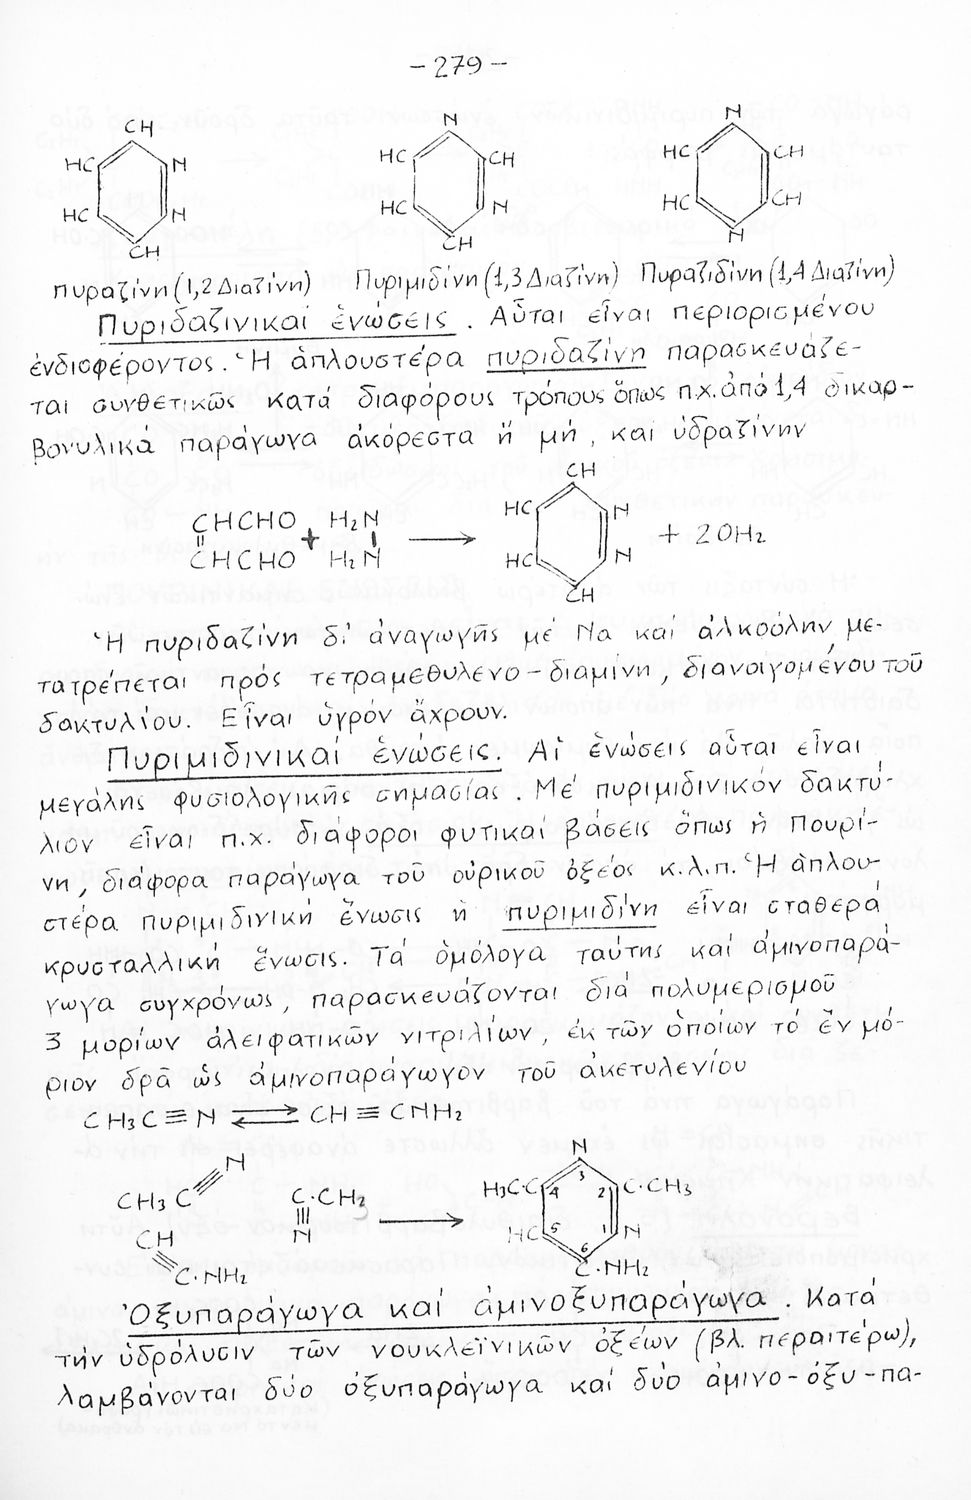 - 279 -
CH N N
HC N HC CH HC CH
HC N HC N HC CH
CH CH N
πυραζίνη (1,2 Διαζίνη) Πυριμιδίνη (1,3 Διαζίνη) Πυραζιδίνη (1,4 Διαζίνη)
Πυριδαζινικαί ἑνώσεις. Αὗται εἶναι περιορισμένου
ἐνδιαφέροντος. Ἡ ἁπλουστέρα πυριδαζίνη παρασκευάζε-
ται συνθετικῶς κατά διαφόρους τρόπους ὅπως π.χ. ἀπό 1,4 δικαρ-
βονυλικά παράγωγα ἀκόρεστα ἤ μή, καί ὑδραζίνην
CH
CHCHO H₂N HC N
= + | → + 2OH₂
CHCHO H₂N HC N
CH
Ἡ πυριδαζίνη δι' ἀναγωγῆς μέ Na καί ἀλκοόλην με-
τατρέπεται πρός τετραμεθυλενο-διαμίνη, διανοιγομένου τοῦ
δακτυλίου. Εἶναι ὑγρόν ἄχρουν.
Πυριμιδινικαί ἑνώσεις. Αἱ ἑνώσεις αὗται εἶναι
μεγάλης φυσιολογικῆς σημασίας. Μέ πυριμιδινικόν δακτύ-
λιον εἶναι π.χ. διάφοροι φυτικαί βάσεις ὅπως ἡ Πουρί-
νη, διάφορα παράγωγα τοῦ οὐρικοῦ ὀξέος κ.λ.π. Ἡ ἁπλου-
στέρα πυριμιδινική ἕνωσις ἡ πυριμιδίνη εἶναι σταθερά
κρυσταλλική ἕνωσις. Τά ὁμόλογα ταύτης καί ἀμινοπαρά-
γωγα συγχρόνως, παρασκευάζονται διά πολυμερισμοῦ
3 μορίων ἀλειφατικῶν νιτριλίων, ἐκ τῶν ὁποίων τό ἕν μό-
ριον δρᾶ ὡς ἀμινοπαράγωγον τοῦ ἀκετυλενίου
CH₃C≡N ⇄ CH≡CNH₂
N N
CH₃C C·CH₃ H₃C·C 4 3 2 C·CH₃
CH N → HC 5 6 1 N
C·NH₂ C·NH₂
Ὀξυπαράγωγα καί ἀμινοξυπαράγωγα. Κατά
τήν ὑδρόλυσιν τῶν νουκλεϊνικῶν ὀξέων (βλ. περαιτέρω),
λαμβάνονται δύο ὀξυπαράγωγα καί δύο ἀμινο-όξυ-πα-